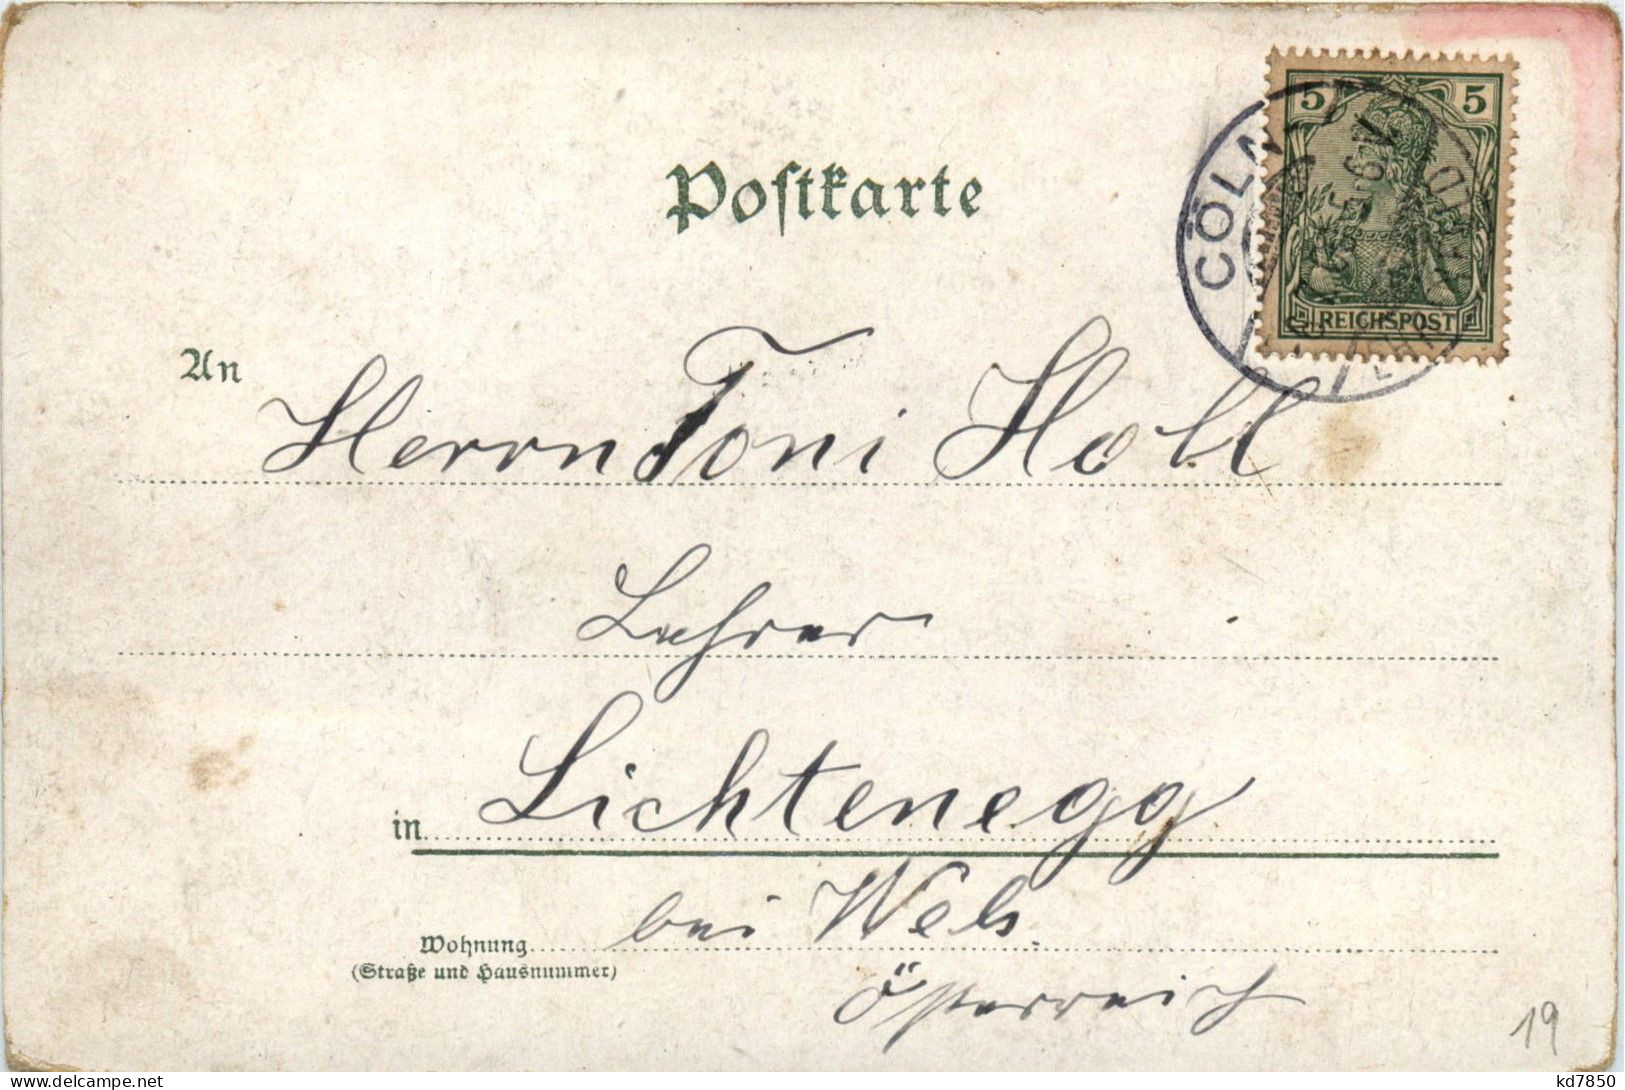 Postkarte
CÖLN
5 5
REICHSPOST
An Herrn Toni Holl
Lehrer
in Lichtenegg
bei Wels
Wohnung
(Straße und Hausnummer)
Österreich
19
kd7850